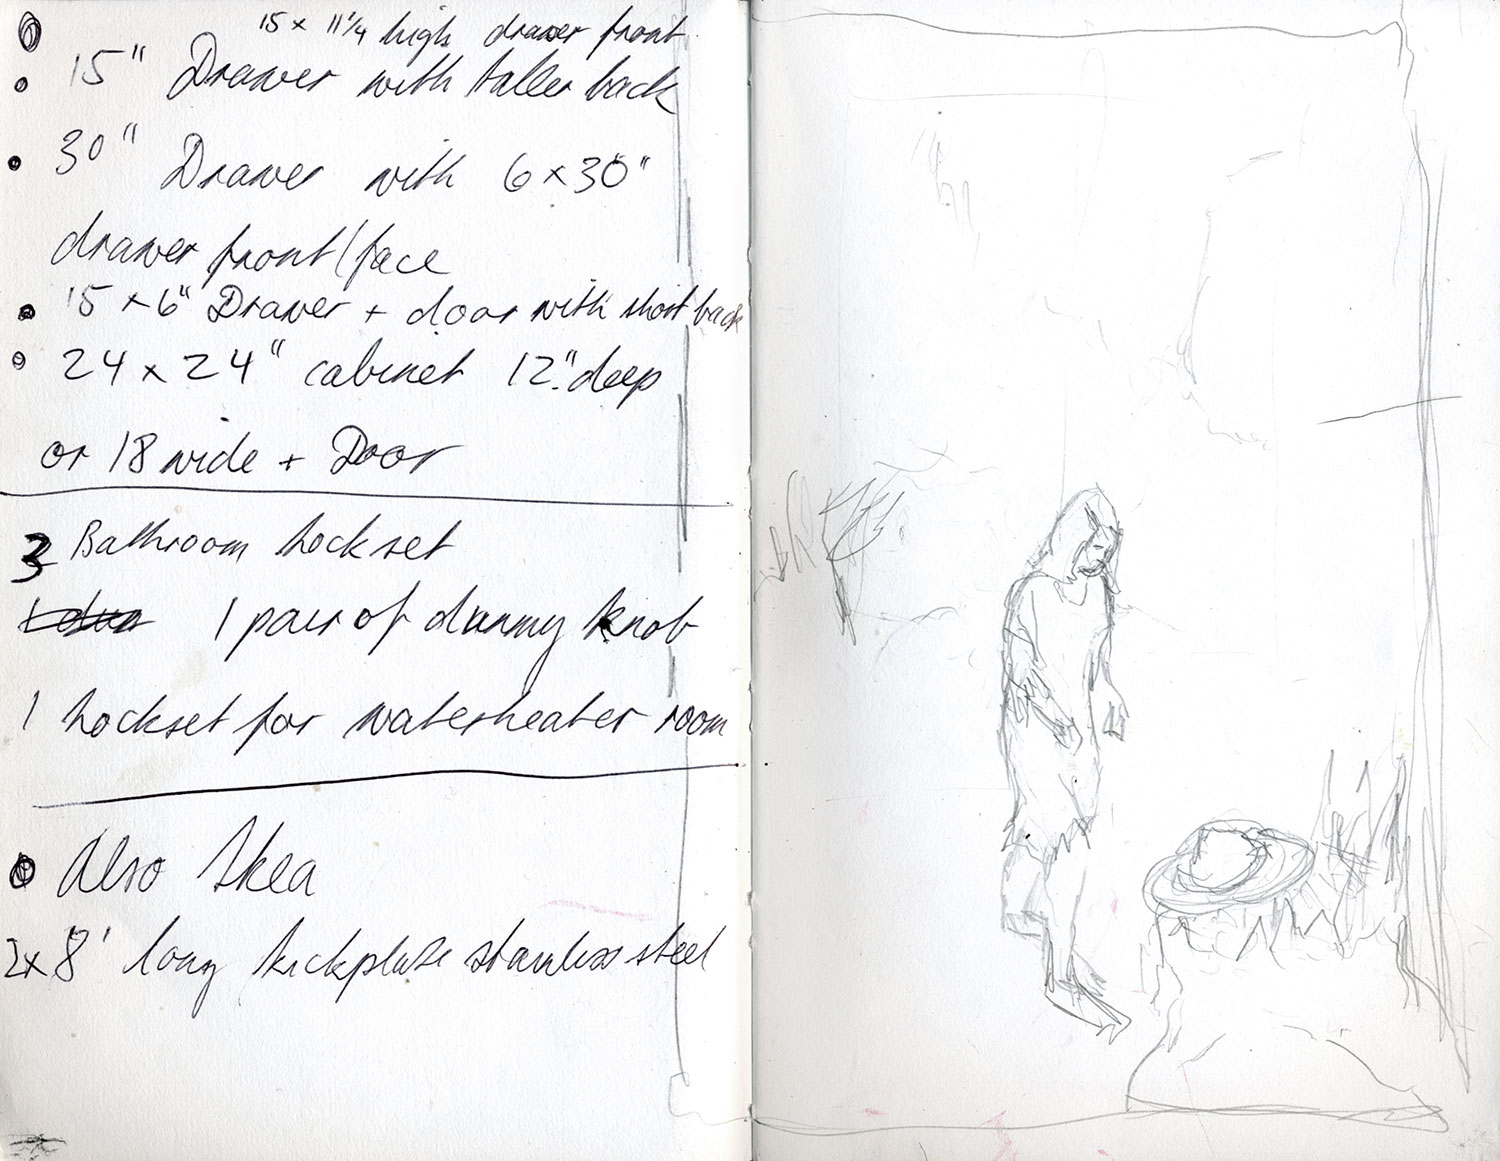 15 x 11 1/4 high drawer front
15" Drawer with taller back
30" Drawer with 6 x 30"
drawer front/face
15 x 6" Drawer + door with short back
24 x 24" cabinet 12" deep
or 18 wide + Door
3 Bathroom lockset
1 pair of dummy knob
1 lockset for waterheater room
Also Ikea
2x 8' long kickplate stainless steel